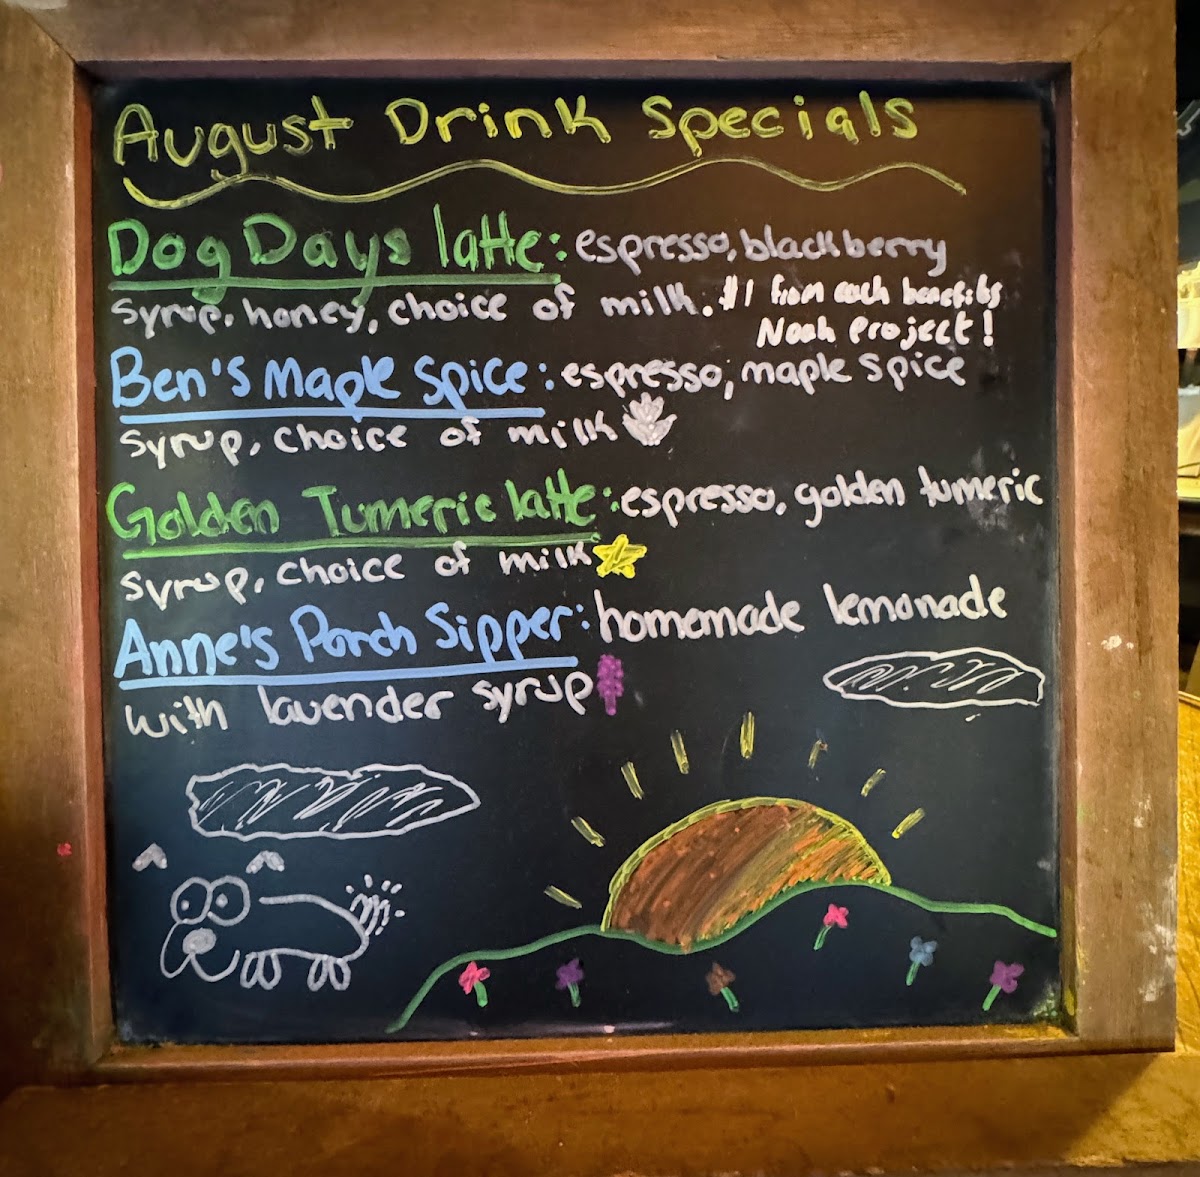 August Drink Specials
Dog Days latte: espresso, blackberry
syrup, honey, choice of milk. $1 from each benefits
Noah Project!
Ben's Maple Spice: espresso, maple spice
syrup, choice of milk
Golden Tumeric latte: espresso, golden tumeric
syrup, choice of milk
Anne's Porch Sipper: homemade lemonade
with lavender syrup